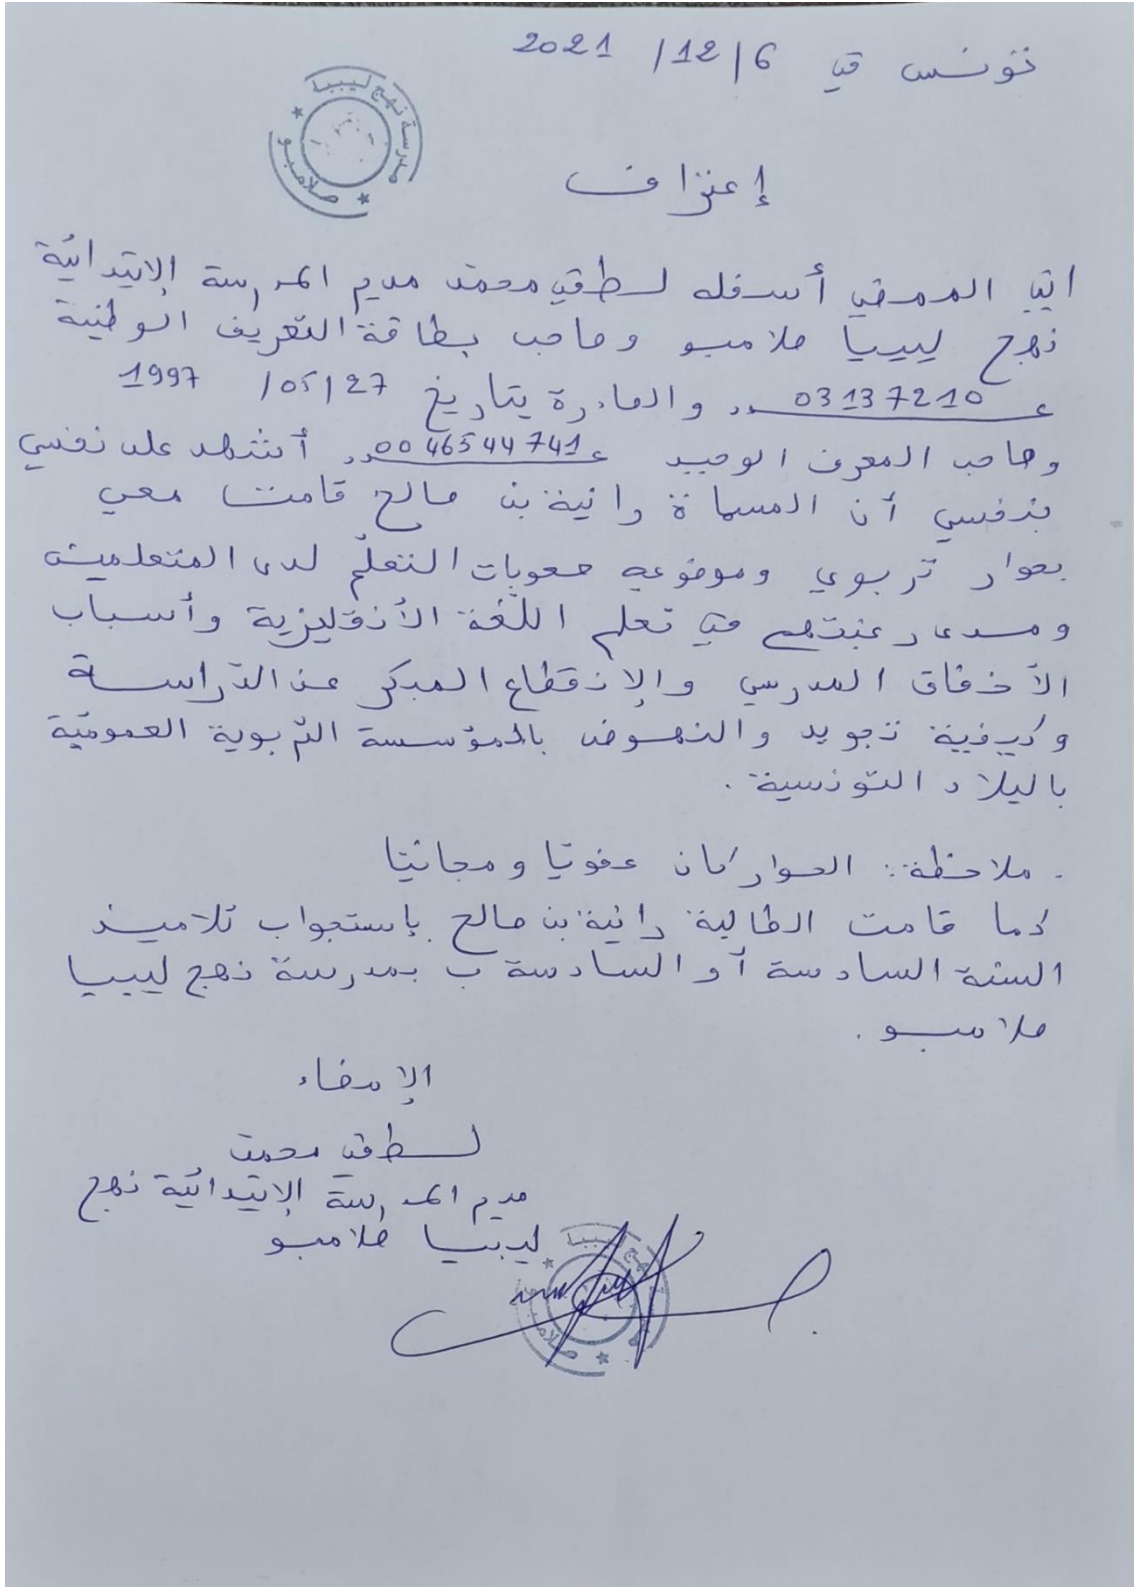 تونس في 6/12/2021
مدرسة نهج ليبيا
صلامبو
إعتراف
إني الممضي أسفله لسطقي محمد مدير المدرسة الإبتدائية
نهج ليبيا صلامبو وصاحب بطاقة التعريف الوطنية
عـ03137210ـدد والصادرة بتاريخ 27/05/1997
وصاحب المعرف الوحيد عـ0046544741ـدد أشهد على نفسي
بنفسي أن المسماة رانية بن صالح قامت معي
بحوار تربوي وموضوعه صعوبات التعلّم لدى المتعلمين
ومدى رغبتهم في تعلم اللّغة الأنقليزية وأسباب
الأخفاق المدرسي والإنقطاع المبكر عن الدّراسة
وكيفية تجويد والنهوض بالمؤسسة التّربوية العموميّة
بالبلاد التونسية.
. ملاحظة: الحوار كان عفويّا ومجانيّا
كما قامت الطالبة رانية بن صالح بإستجواب تلاميذ
السنة السادسة أ والسادسة ب بمدرسة نهج ليبيا
صلامبو.
الإمضاء
لسطقي محمد
مدير المدرسة الإبتدائية نهج
ليبيا صلامبو